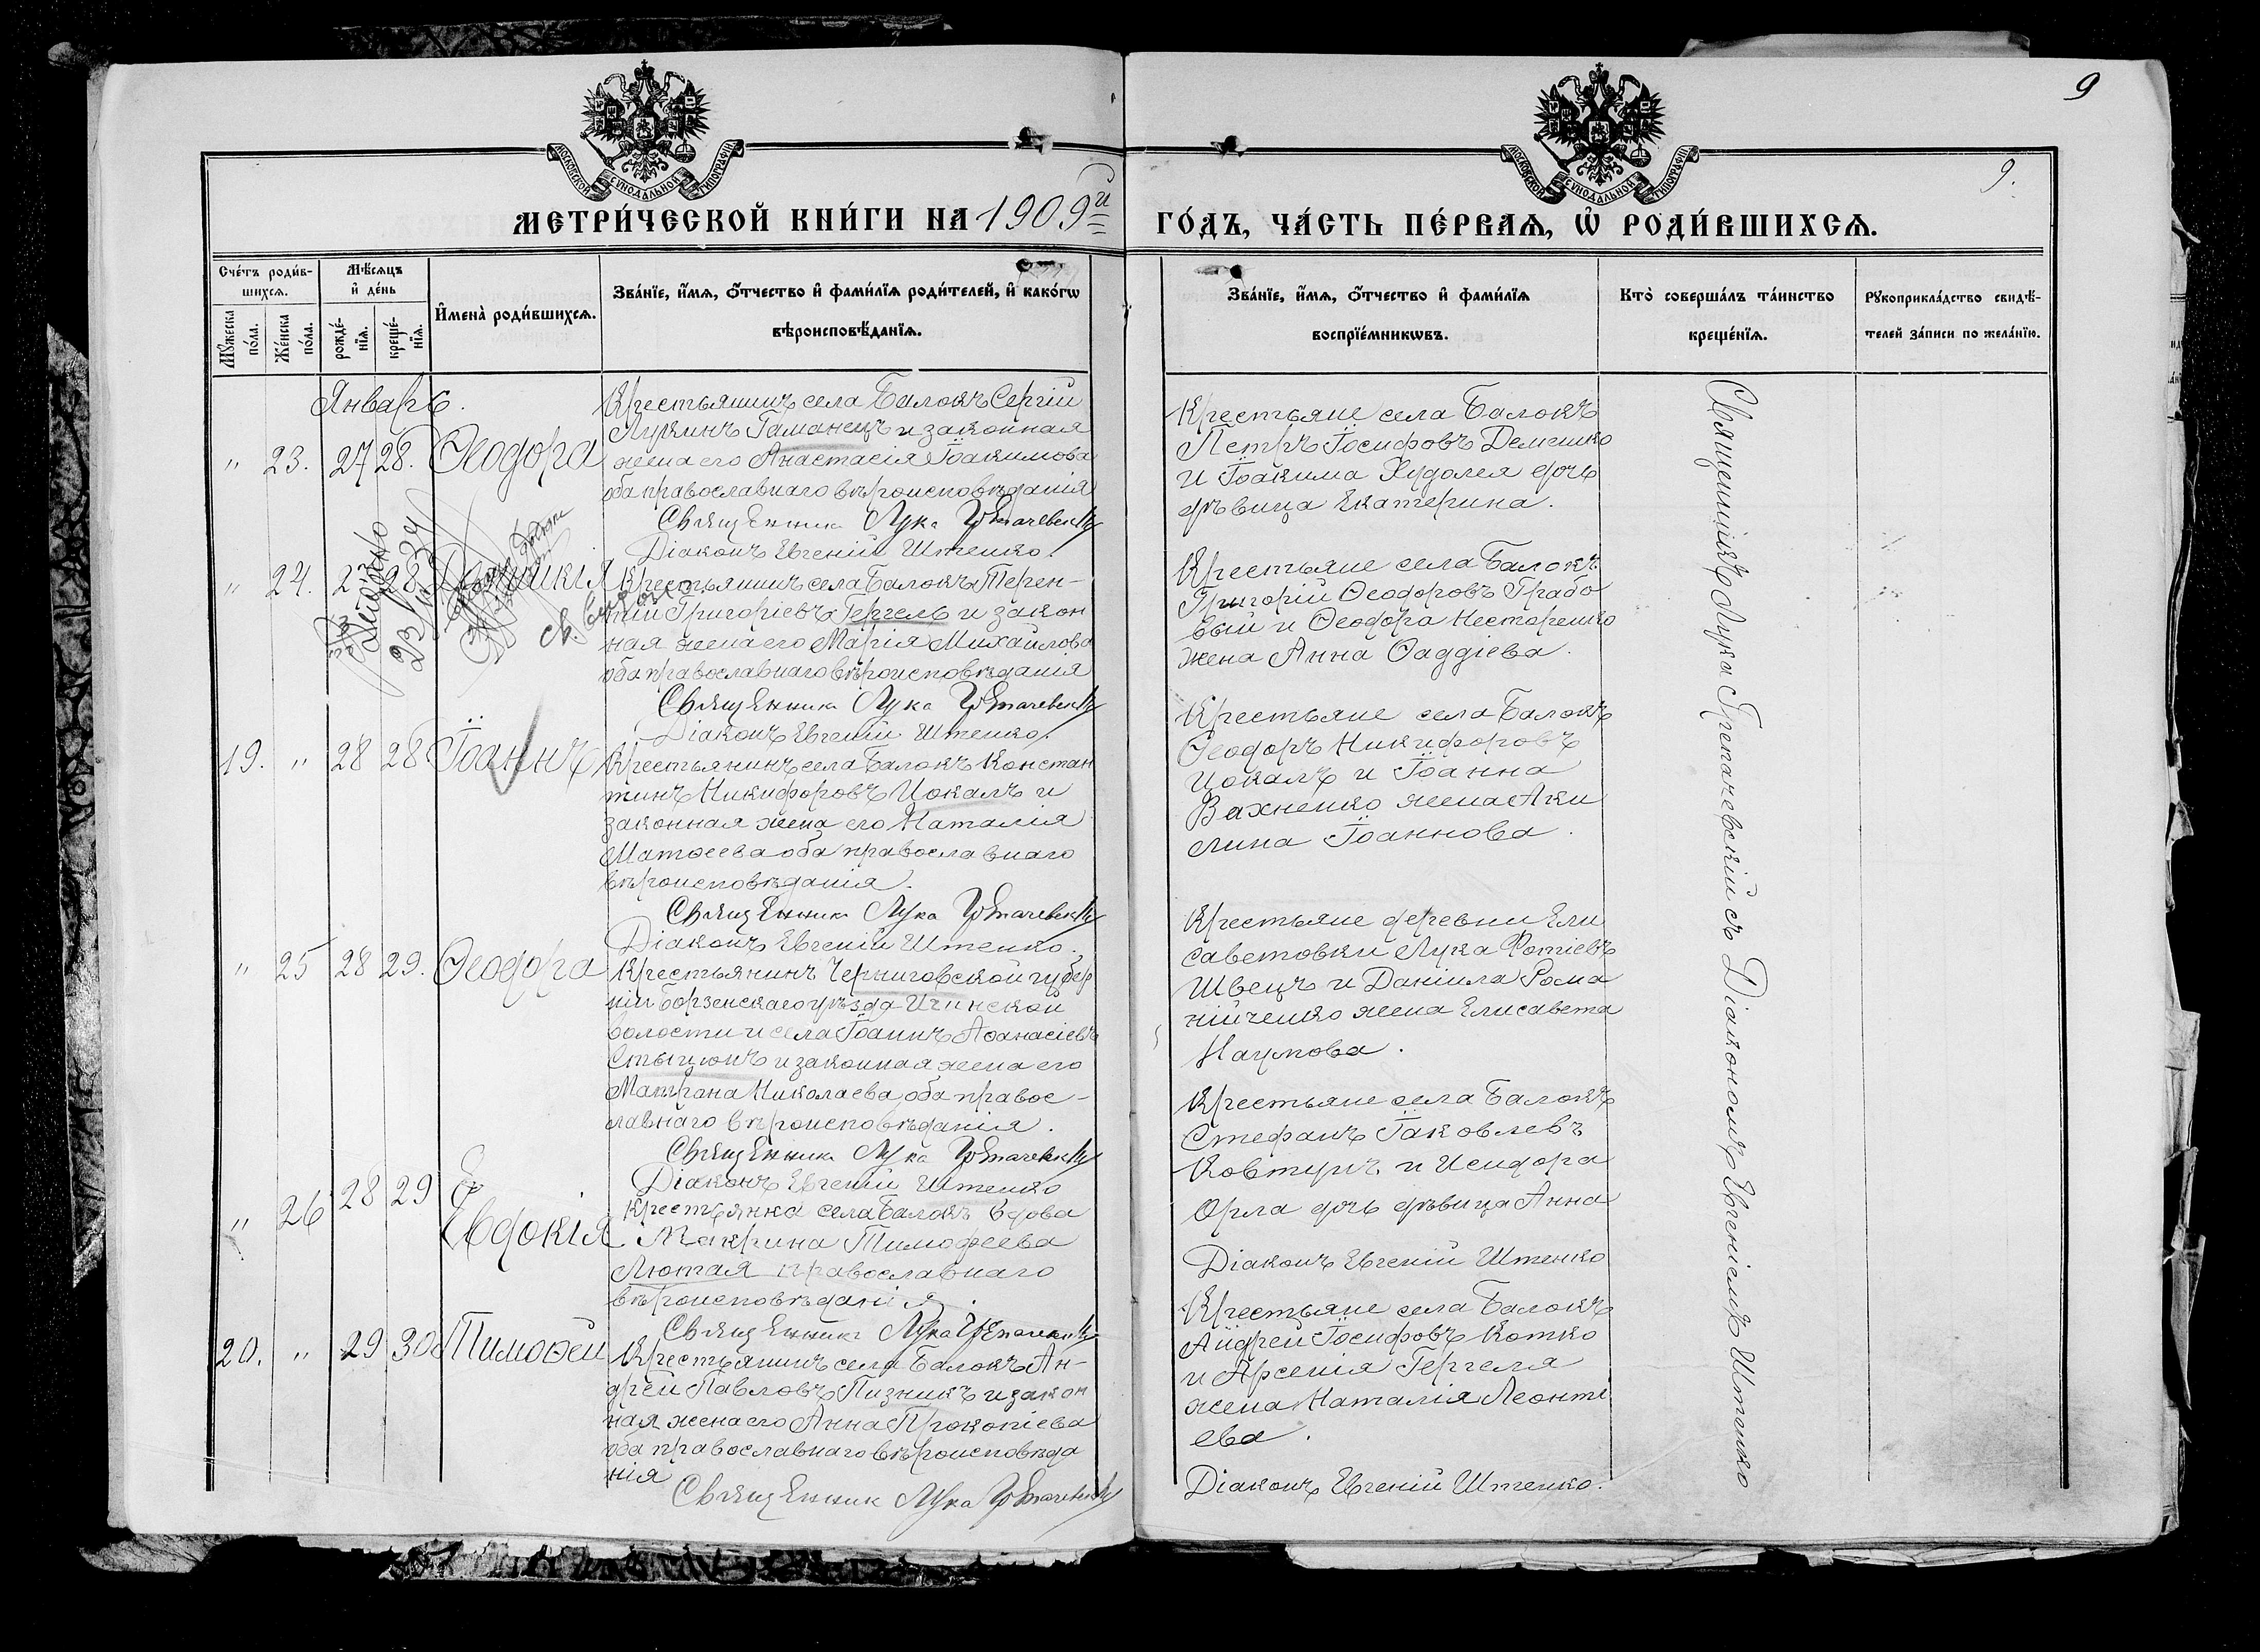 9
9.
МОСКОВСКОЙ СѴНОДАЛЬНОЙ ТИПОГРАФІИ
МОСКОВСКОЙ СѴНОДАЛЬНОЙ ТИПОГРАФІИ
МЕТРИ́ЧЕСКОЙ КНИ́ГИ НА 1909й
ГО́ДЪ, ЧА́СТЬ ПЕ́РВАѦ, Ѡ҆ РОДИ́ВШИХСѦ.
Сче́тъ роди́в-
шихсѧ.
Мꙋ́жеска
по́ла.
Же́нска
по́ла.
Мѣ́сѧцъ
и҆ де́нь
рожде́-
нїѧ.
креще́-
нїѧ.
И҆мена̀ роди́вшихсѧ.
Зва́нїе, и҆́мѧ, ѻ҆́тчество и҆ фами́лїѧ роди́телей, и҆ како́гѡ
вѣроисповѣ́данїѧ.
Зва́нїе, и҆́мѧ, ѻ҆́тчество и҆ фами́лїѧ
воспрїе́мникѡвъ.
Кто̀ соверша́лъ та́инство
креще́нїѧ.
Рꙋкоприкла́дство свидѣ́-
телей за́писи по жела́нїю.
Январь.
" 23. 27 28. Ѳеодора
Крестьянинъ села Балокъ Сергій
Лукинъ Гаманецъ и законная
жена его Анастасія Іоакимова
оба православнаго вѣроисповѣданія
Священникъ Лука Гретачевскій
Діаконъ Евгеній Штенко.
Крестьяне села Балокъ
Петръ Іосифовъ Демешко
и Іоакима Худолея дочь
дѣвица Екатерина.
" 24. 27 28
Крестьянинъ села Балокъ Терен-
тій Григоріевъ Гергель и закон
ная жена его Марія Михайлова
оба православнаго вѣроисповѣданія
Священникъ Лука Гретачевскій
Діаконъ Евгеній Штенко.
Крестьяне села Балокъ
Григорій Ѳеодоровъ Грабо
вый и Ѳеодора Нестеренко
жена Анна Ѳаддіева.
19. " 28 28 Іоаннъ
Крестьянинъ села Балокъ Констан
тинъ Никифоровъ Цокалъ и
законная жена его Наталія
Матѳеева оба православнаго
вѣроисповѣданія.
Священникъ Лука Гретачевскій
Діаконъ Евгеній Штенко.
Крестьяне села Балокъ
Ѳеодоръ Никифоровъ
Цокалъ и Іоанна
Вахненко жена Аки
лина Іоаннова.
" 25 28 29. Ѳеодора
Крестьянинъ Черниговской губер
ніи Борзенскаго уѣзда Ичинской
волости и села Іоаннъ Аѳанасіевъ
Стыцюнъ и законная жена его
Матрона Николаева, оба правос-
лавнаго вѣроисповѣданія.
Священникъ Лука Гретачевскій
Діаконъ Евгеній Штенко
Крестьяне деревни Ели
саветовки Лука Фотіевъ
Швецъ и Даніила Рома
нійченко жена Елисавета
Наумова.
" 26 28 29 Евдокія
Крестьянка села Балокъ вдова
Макрина Тимофеева
Лютая православнаго
вѣроисповѣданія.
Священникъ Лука Гретачевскій
Крестьяне села Балокъ
Стефанъ Іаковлевъ
Ковтунъ и Исидора
Орла дочь дѣвица Анна
Діаконъ Евгеній Штенко
20. " 29 30 Тимоѳей
Крестьянинъ села Балокъ Ан-
дрей Павловъ Пизникъ и закон
ная жена его Анна Прокопіева
оба православнаго вѣроисповѣда
нія
Священникъ Лука Гретачевскій
Крестьяне села Балокъ
Андрей Іосифовъ Котко
и Арсенія Гергеля
жена Наталія Леонті
ева.
Діаконъ Евгеній Штенко.
Священникъ Лука Гретачевскій съ Діакономъ Евгеніемъ Штенко